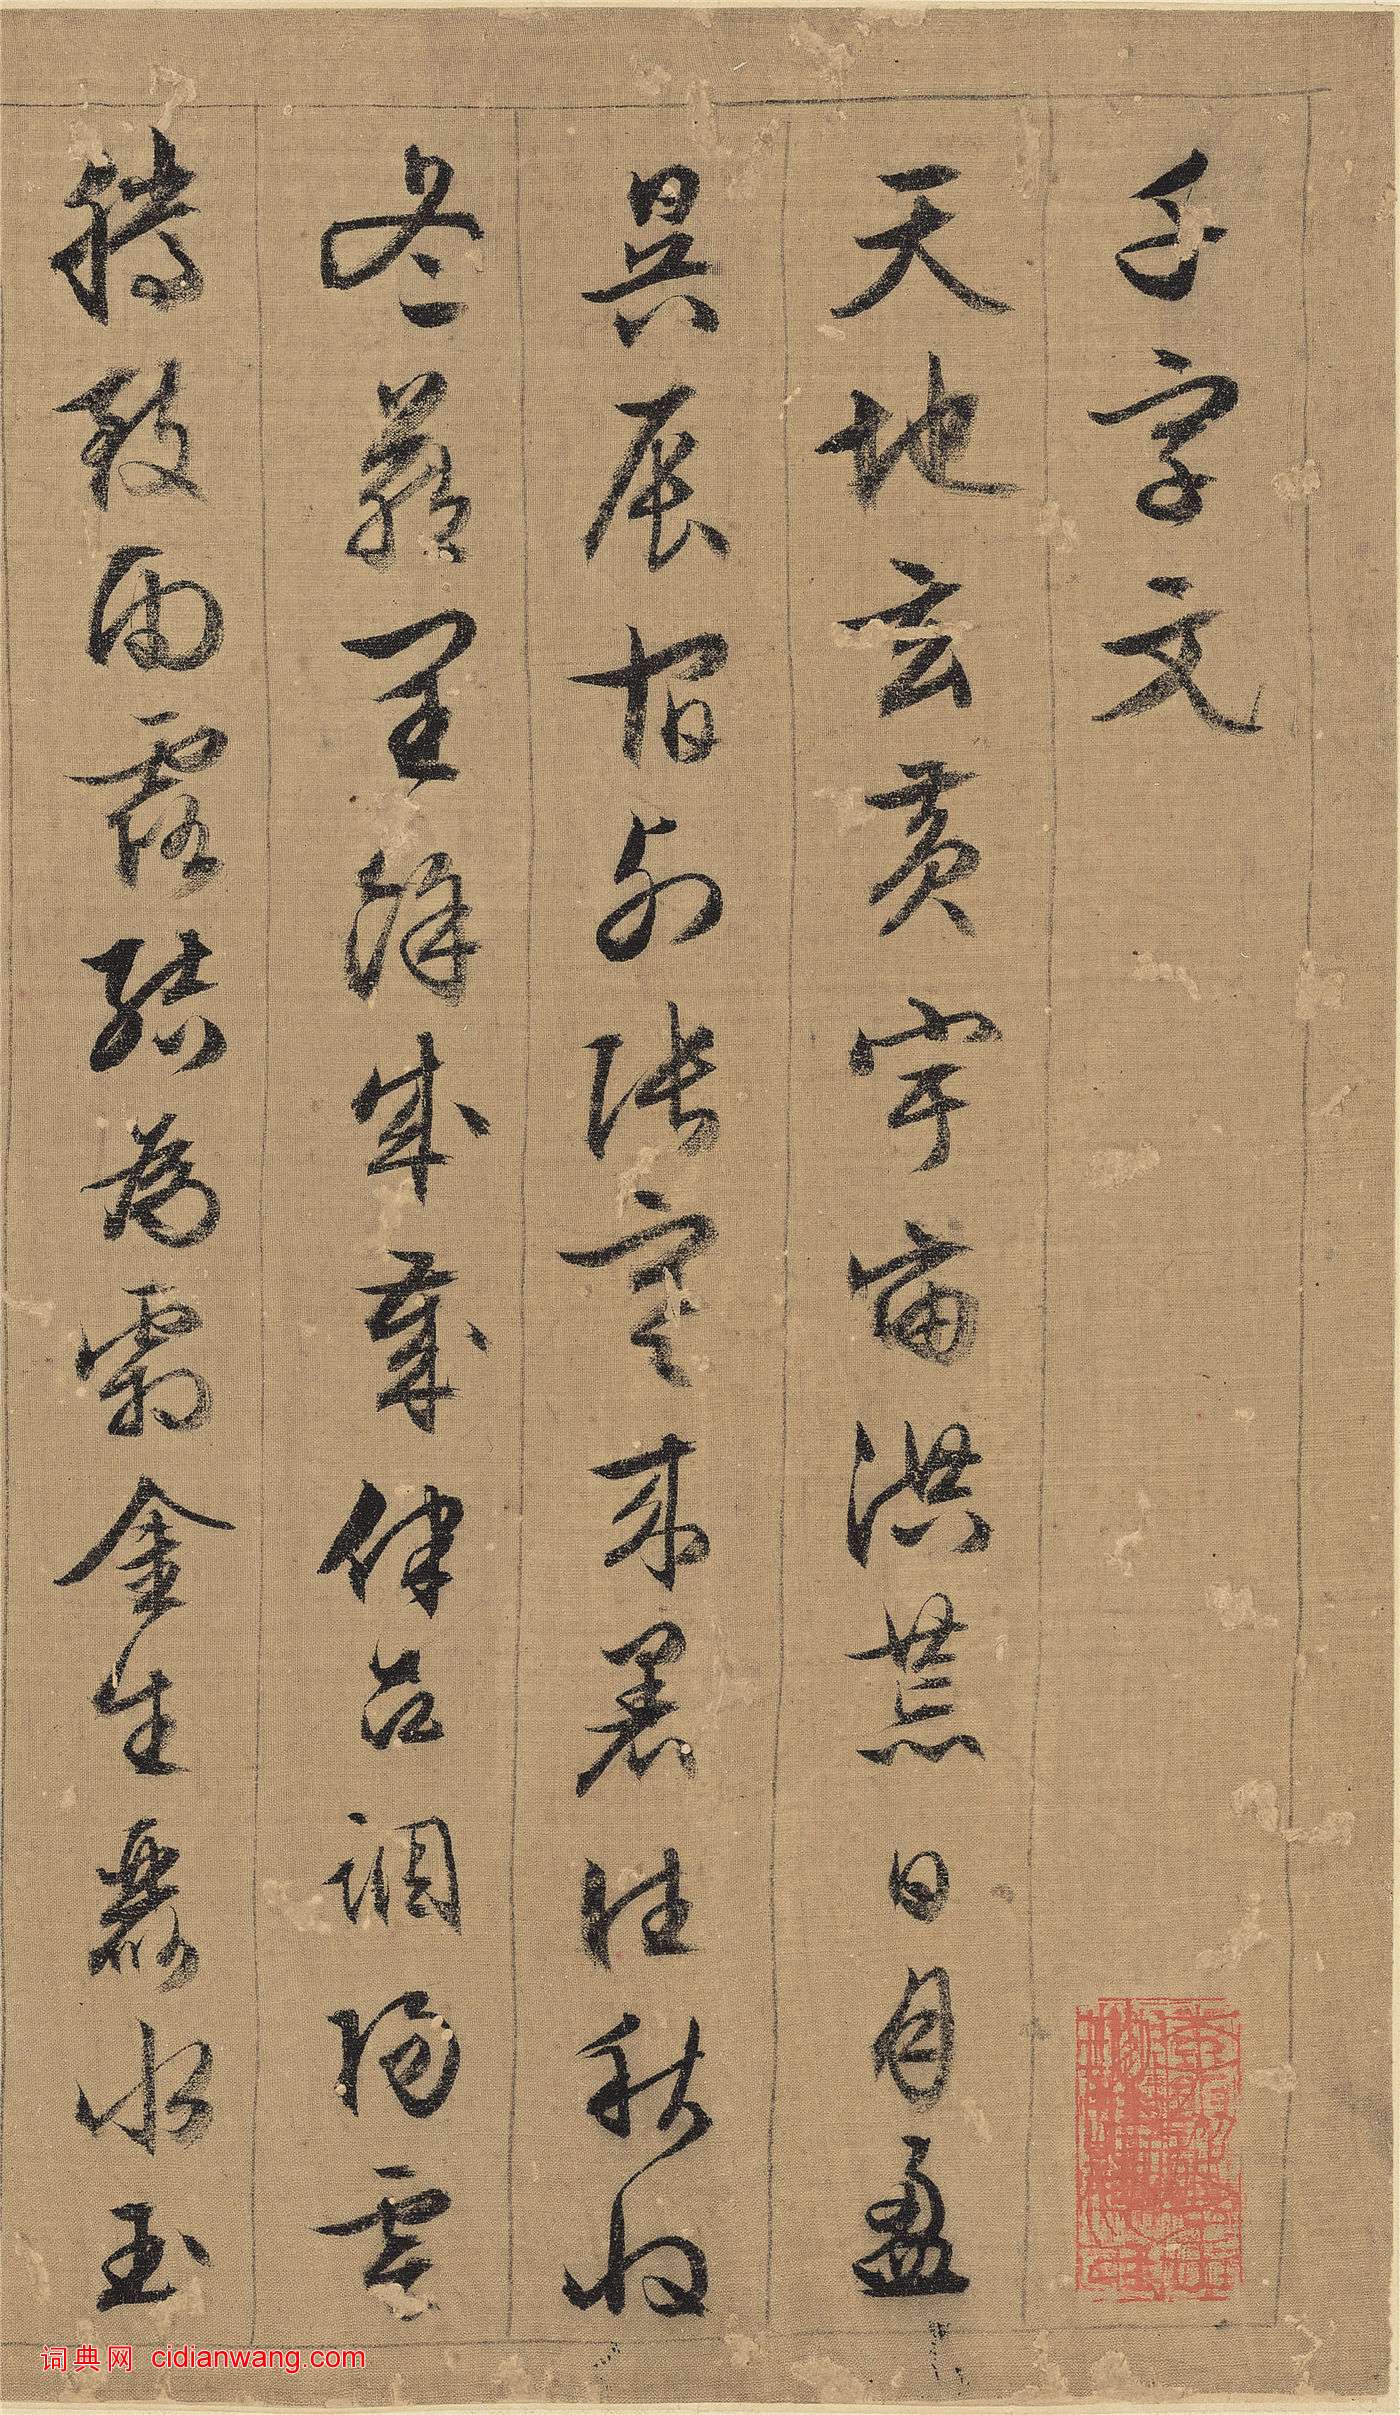 千字文
天地玄黄宇宙洪荒日月盈
昃辰宿列张寒来暑往秋收
冬藏闰馀成岁律吕调阳云
腾致雨露结为霜金生丽水玉
词典网 cidianwang.com